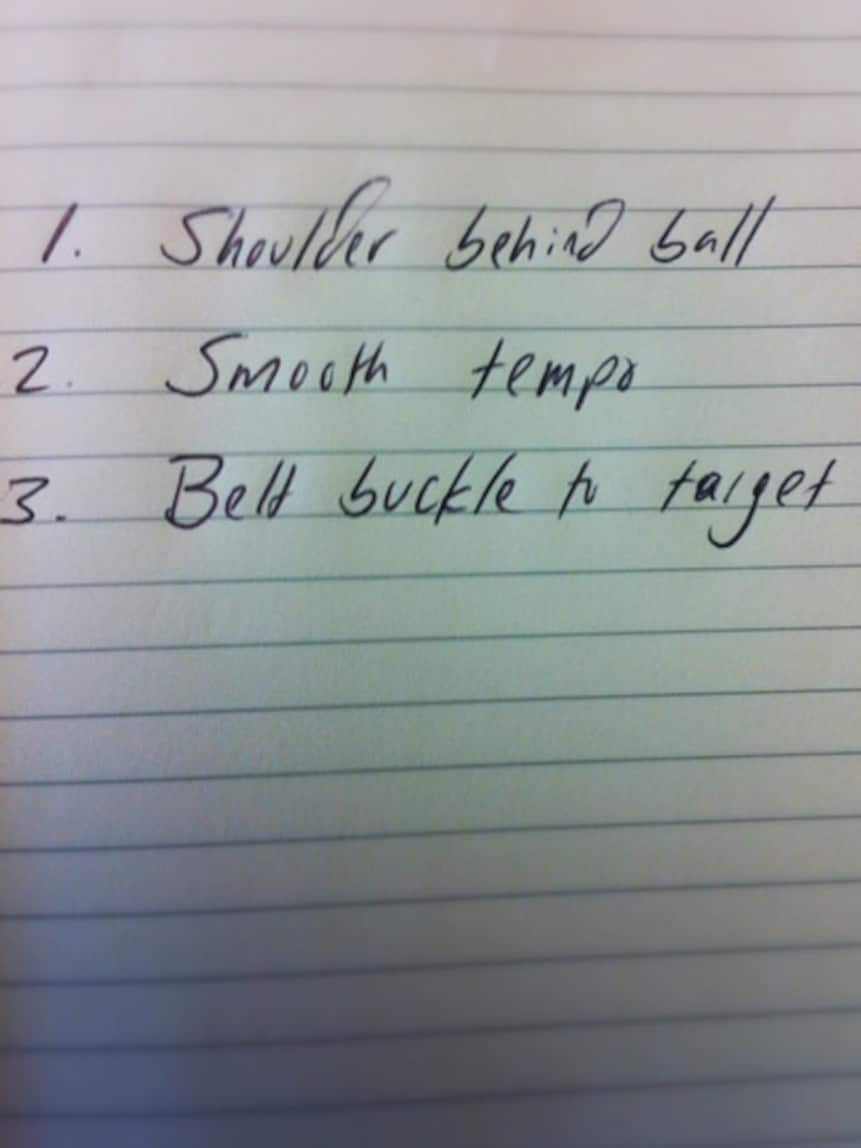 1. Shoulder behind ball
2. Smooth tempo
3. Belt buckle to target